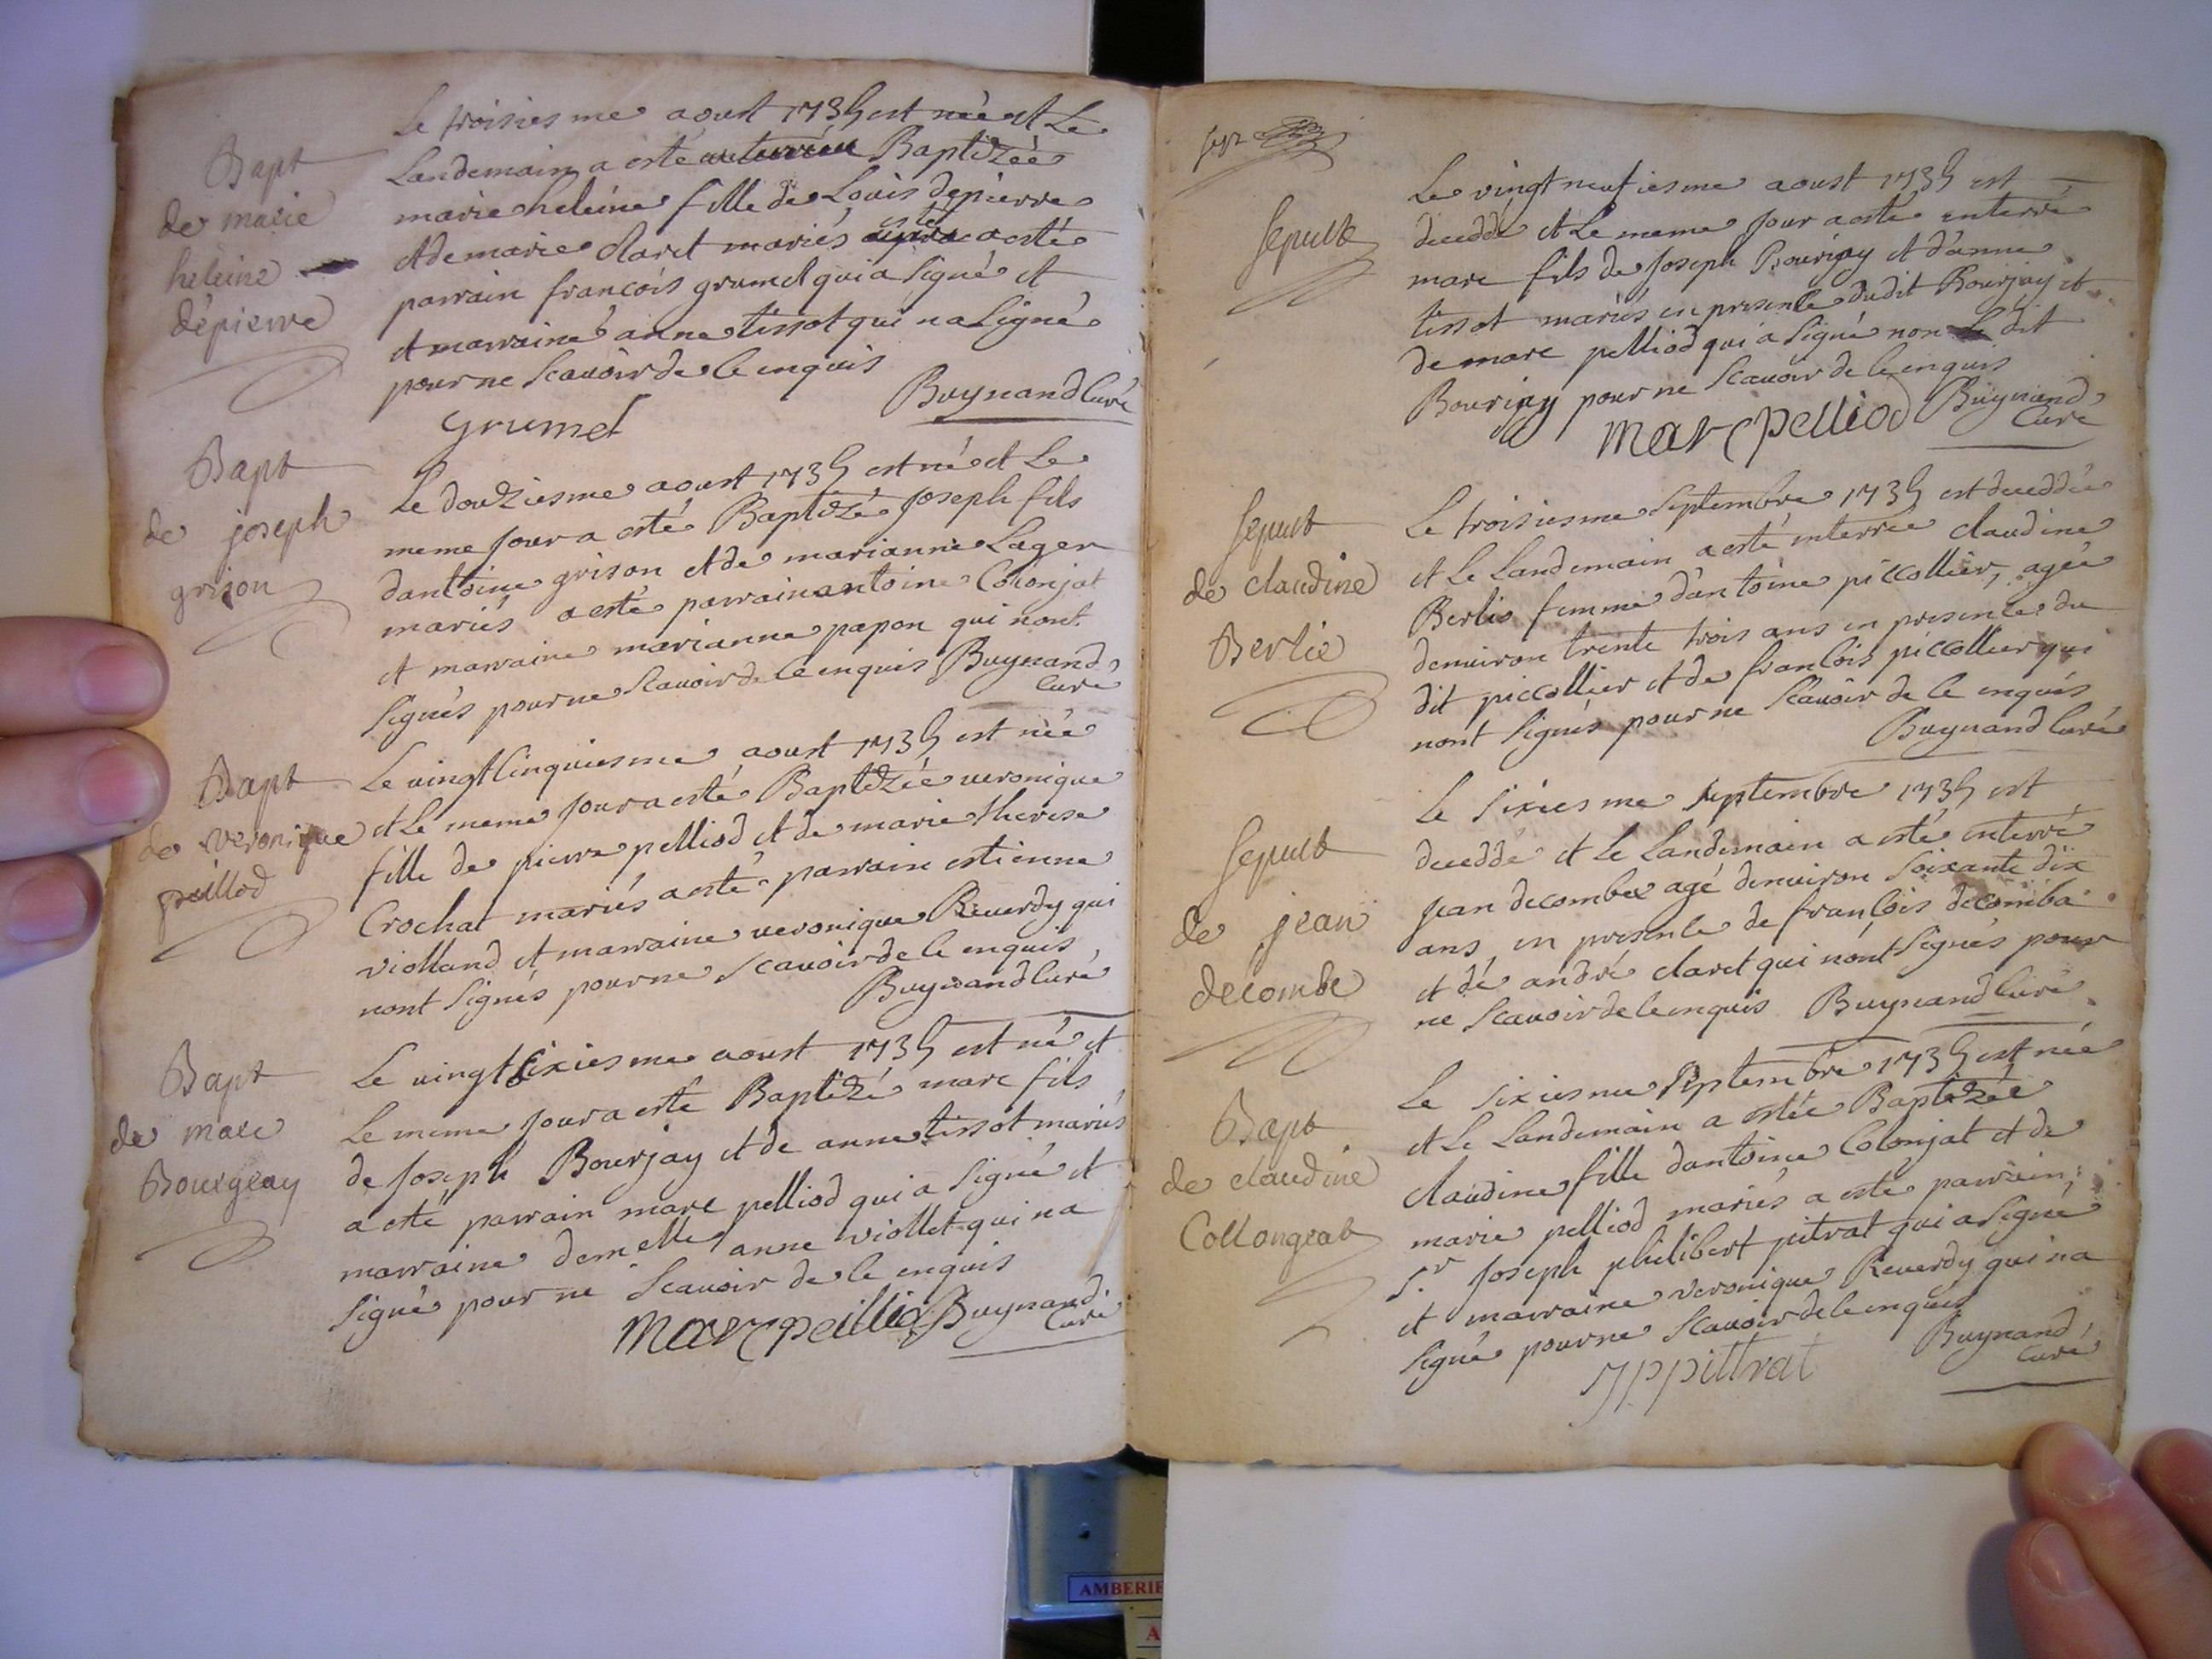 Bapt
de marie
heleine
dépierre
Le troisiesme aoust 1735 est née et Le
Landemain a esté Baptizée
marie heleine fille de Louis depierre
et de marie claret mariés a esté
parrain francois grumel qui a signé et
et marraine anne tissot qui na signé
pour ne scauoir de ce enquis
grumel
Buynand Curé
Bapt
de joseph
grison
Le douziesme aoust 1735 est né et Le
meme Jour a esté Baptizé Joseph fils
dantoine grison et de marianne Lager
mariés a esté parrain antoine Colonjat
et marraine marianne papon qui nont
signés pour ne scauoir de ce enquis Buynand
Curé
Bapt
de veronique
peillod
Le uingt cinquiesme aoust 1735 est née
et Le meme Jour a esté Baptizée ueronique
fille de pierre pelliod et de marie therese
Crochat mariés a esté parrain estienne
violland et marraine ueronique Reuerdy qui
nont signés pour ne scauoir de ce enquis
Buynand Curé
Bapt
de marc
Bourgeay
Le uingt sixiesme aoust 1735 est né et
Le meme Jour a esté Baptizé marc fils
de Joseph Bourjay et de anne tissot mariés
a esté parrain marc pelliod qui a signé et
marraine demelle anne viollet qui na
signé pour ne scauoir de ce enquis
Marc peilliod Buynand
Curé
sepr
Sepult
Le vingt neufiesme aoust 1735 est
decedde et Le meme Jour a esté enterré
marc fils de Joseph Bourjay et d'anne
tissot mariés en presence dudit Bourjay et
de marc pelliod qui a signé non Le dit
Bourjay pour ne scauoir de ce enquis
Marc pelliod Buynand
Curé
Sepult
de claudine
Berlie
Le troisiesme septembre 1735 est deceddée
et Le Landemain a esté enterrée claudine
Berlio femme d'antoine piccollier, agée
denuiron trente trois ans en presence du
dit piccollier et de francois piccollier qui
nont signés pour ne scauoir de ce enquis
Buynand Curé
Sepult
de jean
decombe
Le sixiesme septembre 1735 est
deceddé et Le Landemain a esté enterré
Jean decombe agé denuiron soixante dix
ans, en presence de francois decomba
et de andré claret qui nont signés pour
ne scauoir de ce enquis Buynand Curé
Bapt
de claudine
Collongeat
Le sixiesme septembre 1735 est née
et Le Landemain a estée Baptizée
claudine fille dantoine Colonjat et de
marie pelliod mariés a esté parrain,
S.r Joseph philibert pitrat qui a signé
et marraine veronique Reuerdy qui na
signé pour ne scauoir de ce enquis
JP pittrat
Buynand,
Curé
AMBERIE
A